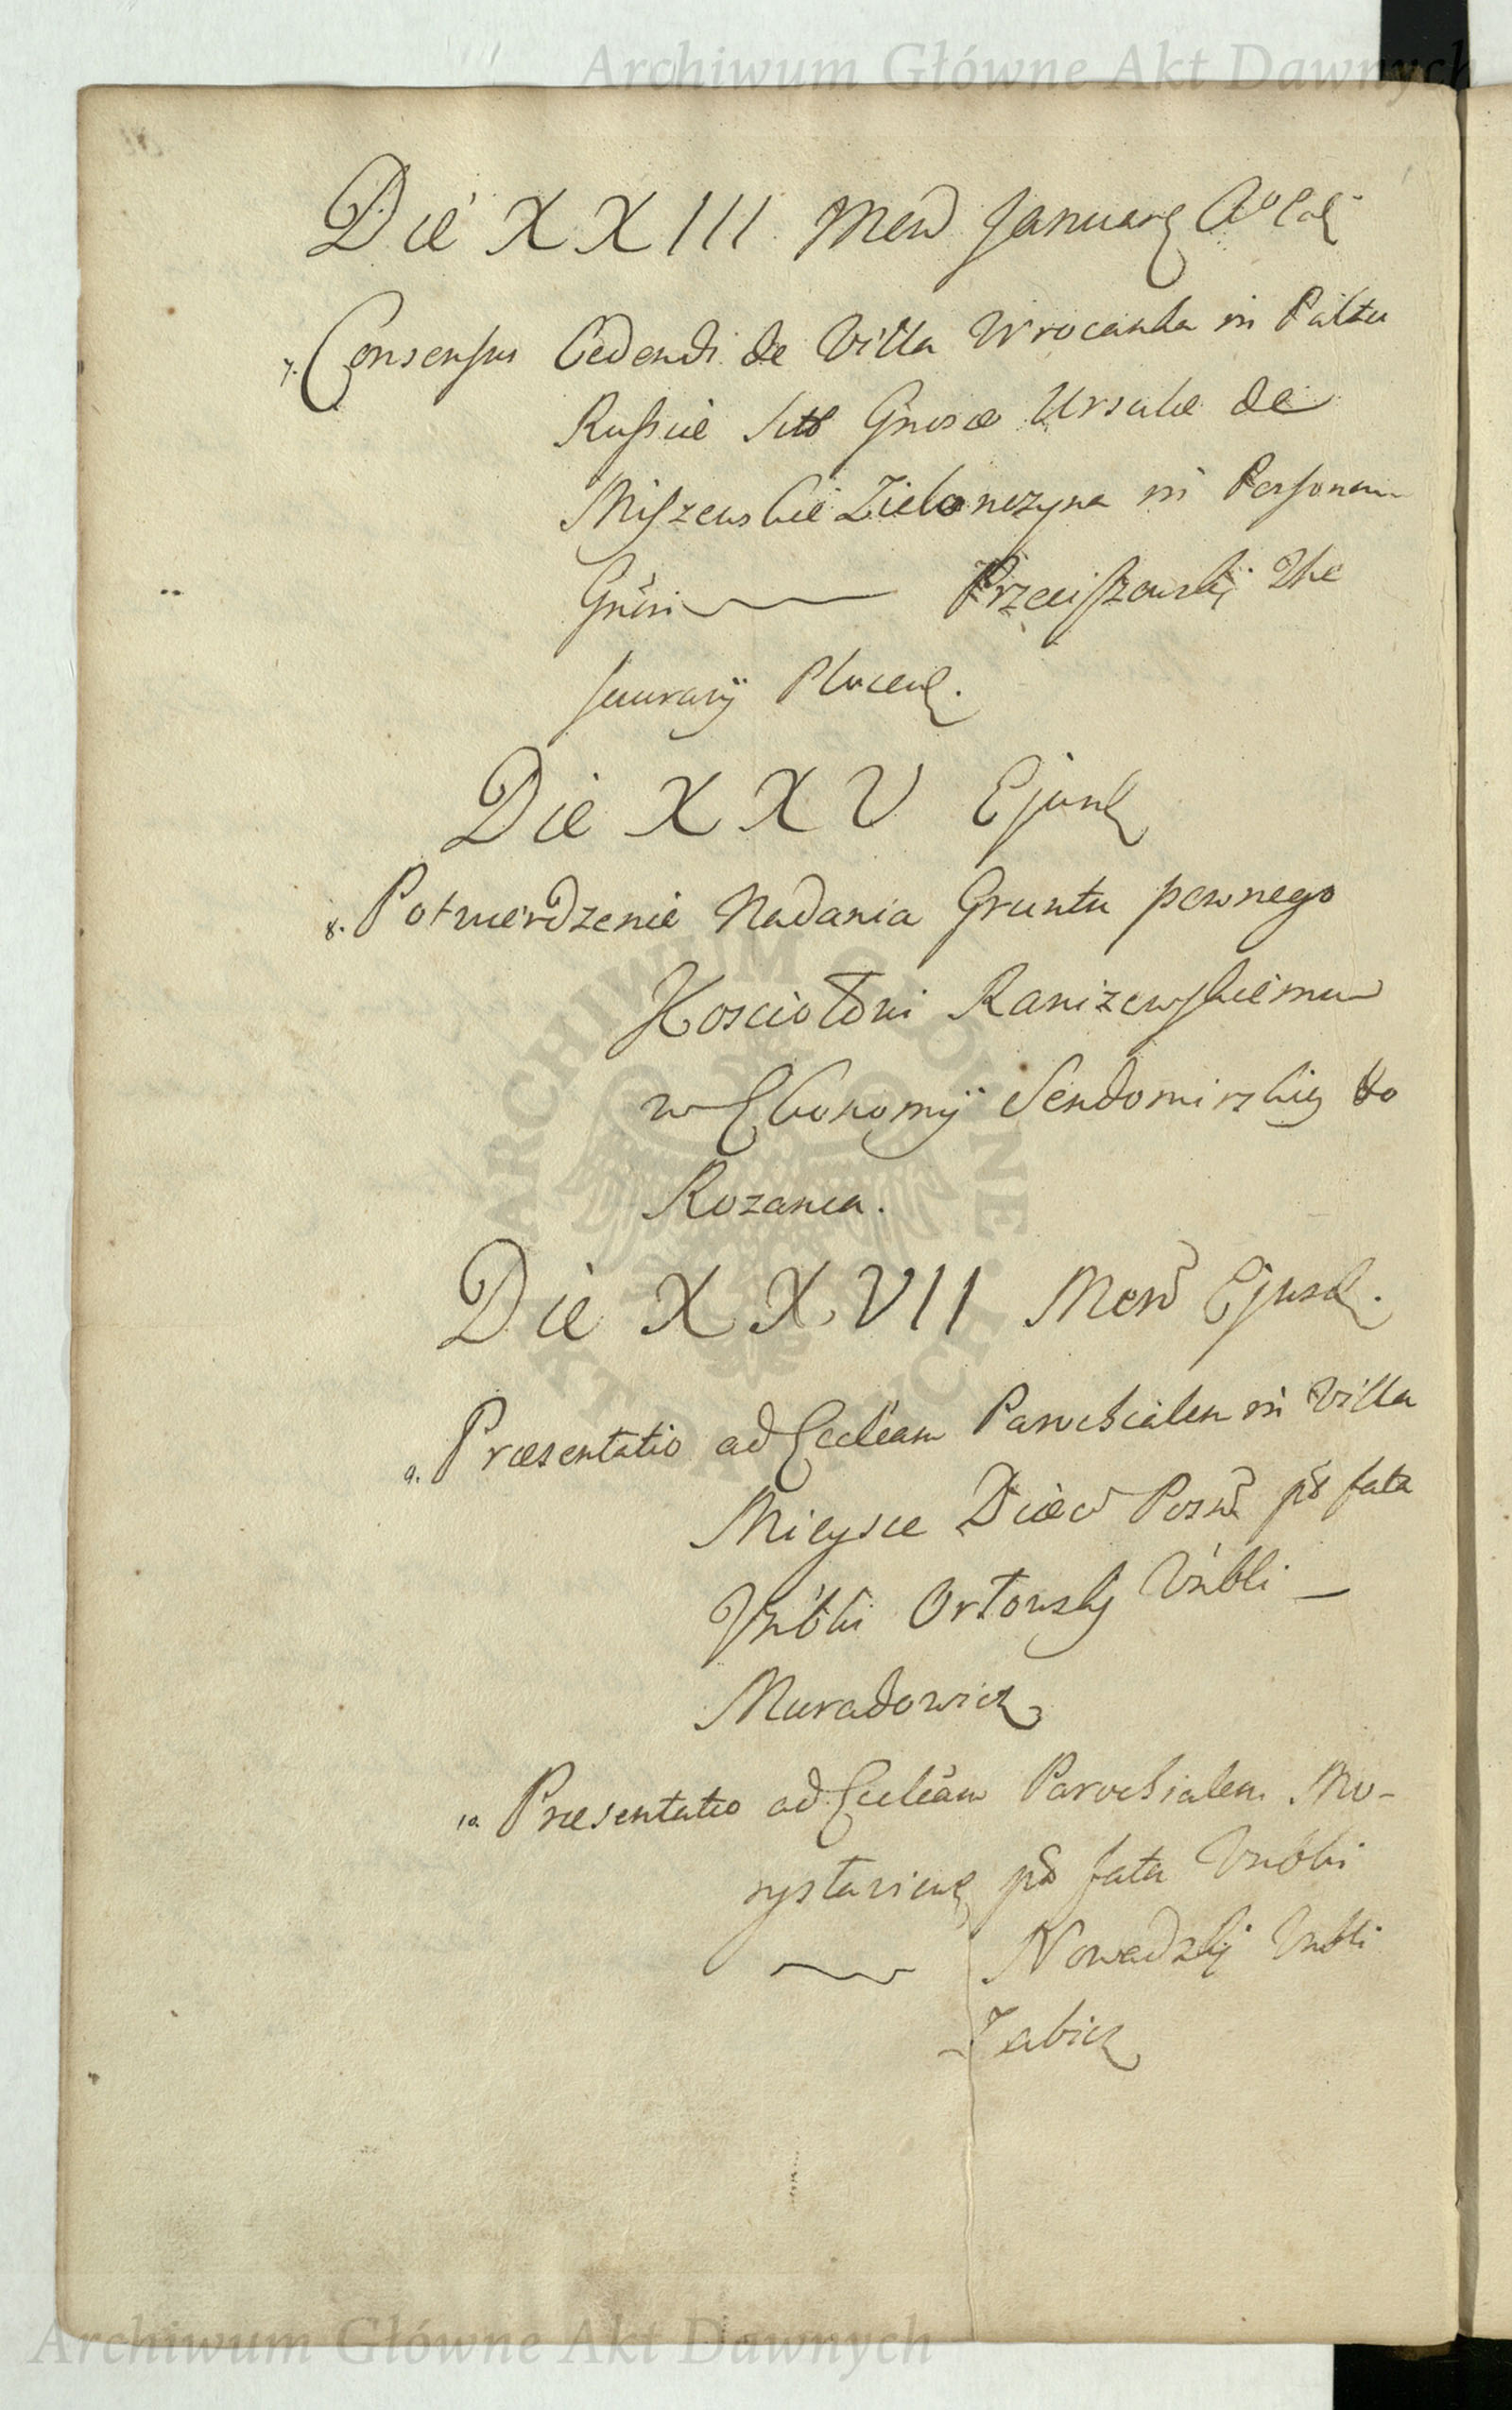 Archiwum Główne Akt Dawnych
Die XXIII Mens Januarii Ao
7. Consensus Cedendi de Villa Wrocanka in Palttu
Russiæ Gnosæ Ursulæ de
Miszewskie Zielonczyna in Personam
Gnosi Przeciszewskij The
saurarij Plocens.
Die XXV Ejusd
8. Potwierdzenie Nadania Gruntu pewnego
Kosciołowi Raniżewskiemu
w Ekonomij Sendomirskiey do
Rozanca.
Die XXVII Mens Ejusd.
9. Præsentatio ad Eccleam Parochialem in Villa
Mieysce Diæc Posn pt fata
Vnbli Orłowskj Vnbli
Muradowicz
10. Præsentatio ad Eccleam Parochialem Mo-
pt fata Vnbli
Nowadzkj Vnbli
Zabicz
ARCHIWUM GŁÓWNE AKT DAWNYCH
Archiwum Główne Akt Dawnych